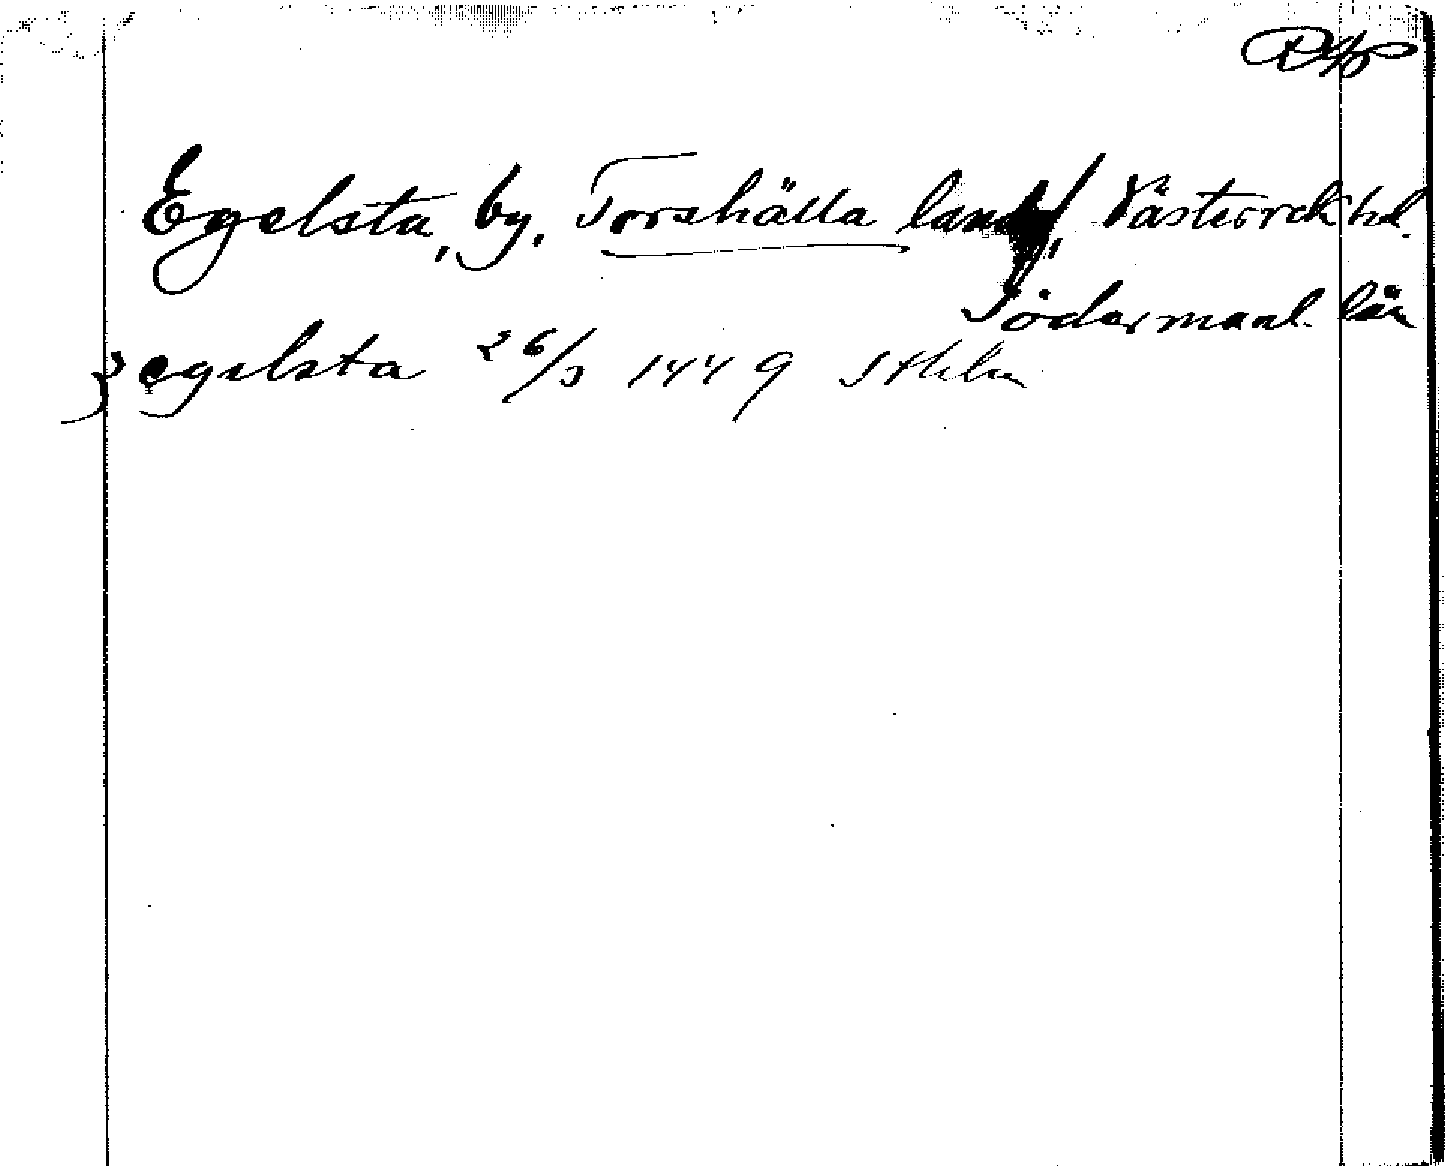 RAp
Egelsta, by, Torshälla land, Västerrek hd.
Södermanl. län
j egelsta 26/3 1449 Sthlm